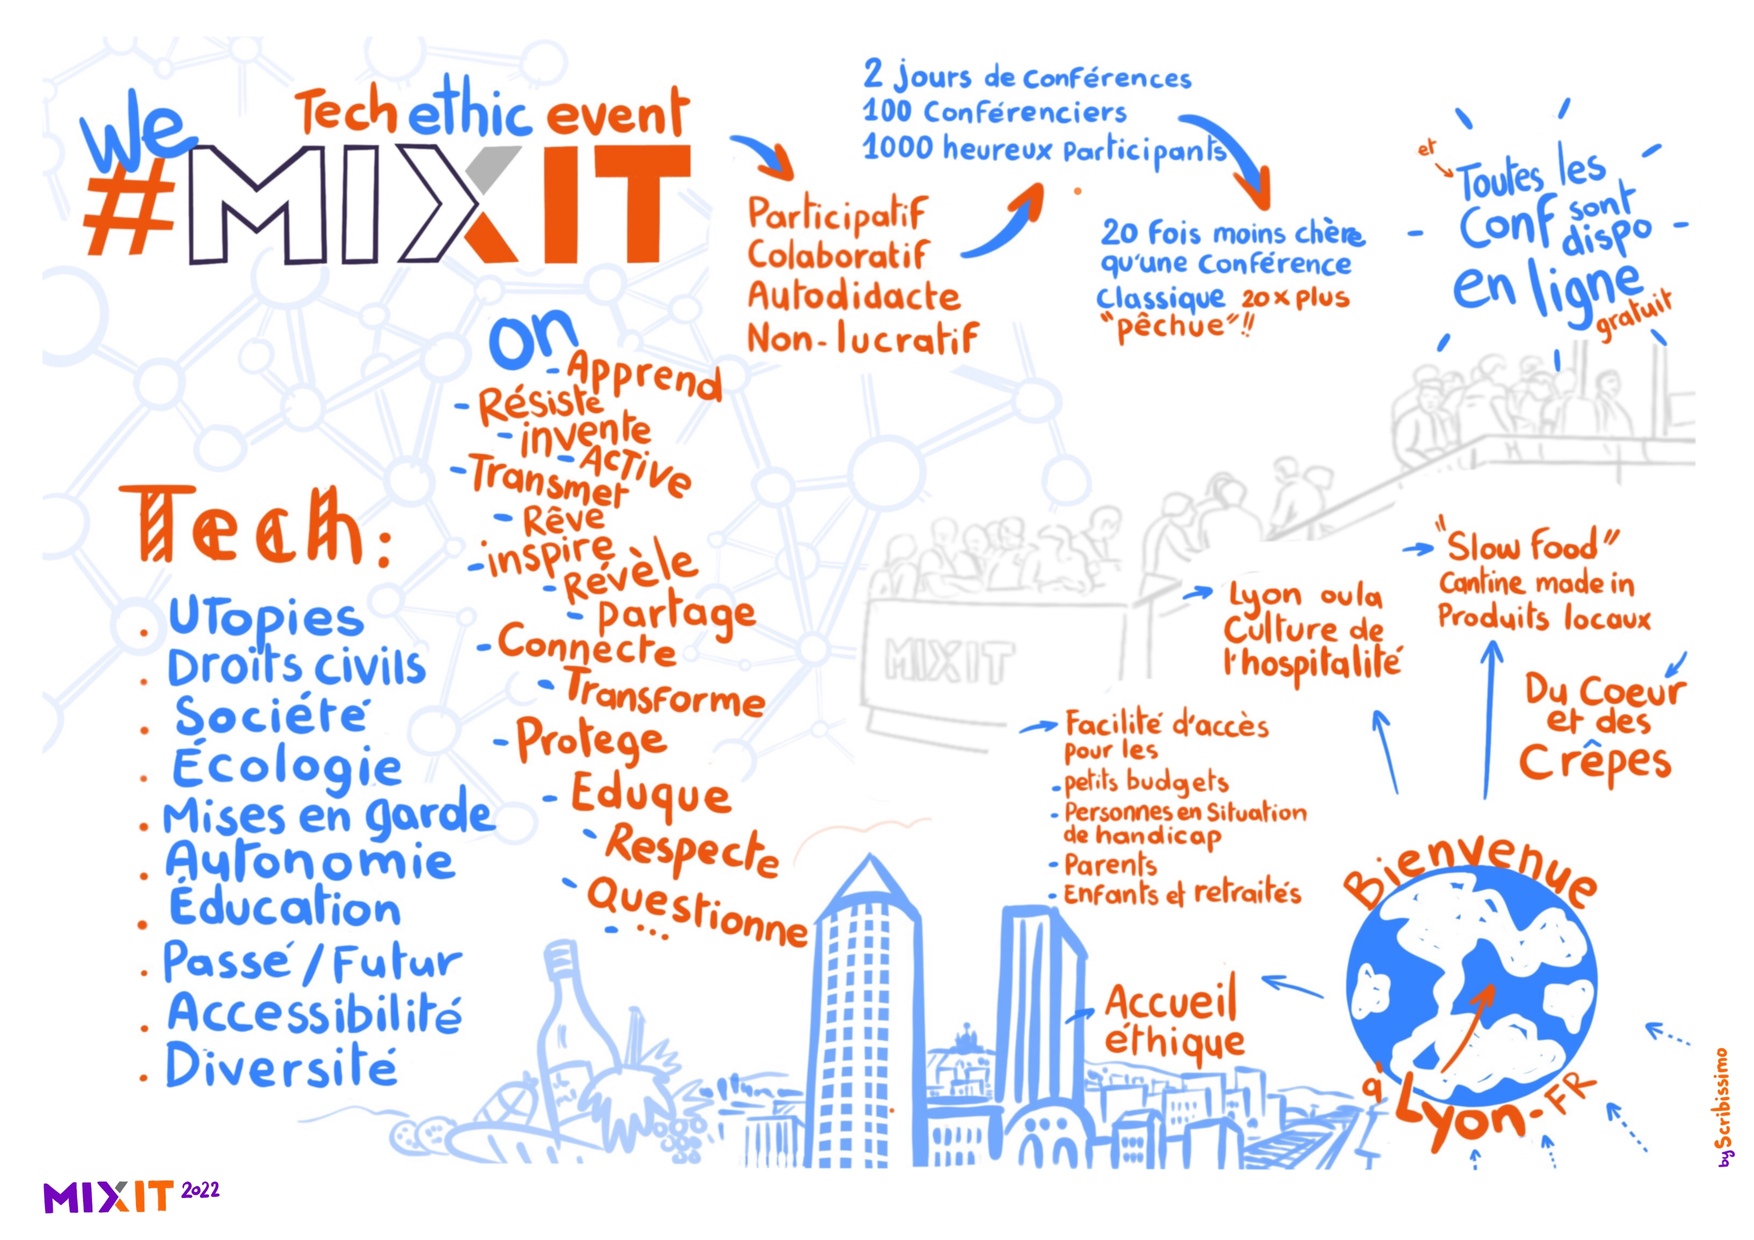 We
Tech ethic event
#MIXIT
2 jours de conférences
100 Conférenciers
1000 heureux participants
Participatif
Colaboratif
Autodidacte
Non-lucratif
20 fois moins chère
qu'une conférence
classique 20x plus
"pêchue"!!
et
Toutes les
Conf sont
dispo
en ligne
gratuit
on
- Apprend
- Résiste
- invente
- Active
- Transmet
- Rêve
- inspire
- Révèle
- partage
- Connecte
- Transforme
- Protege
- Eduque
- Respecte
- Questionne
- ...
Tech:
. Utopies
. Droits civils
. Société
. Écologie
. Mises en garde
. Autonomie
. Éducation
. Passé/Futur
. Accessibilité
. Diversité
MIXIT
"Slow food"
Cantine made in
Produits locaux
Lyon oula
Culture de
l'hospitalité
Du Coeur
et des
Crêpes
Facilité d'accès
pour les
- petits budgets
- Personnes en Situation
de handicap
- Parents
- Enfants et retraités
Accueil
éthique
Bienvenue
à Lyon-FR
by Scribissimo
MIXIT 2022